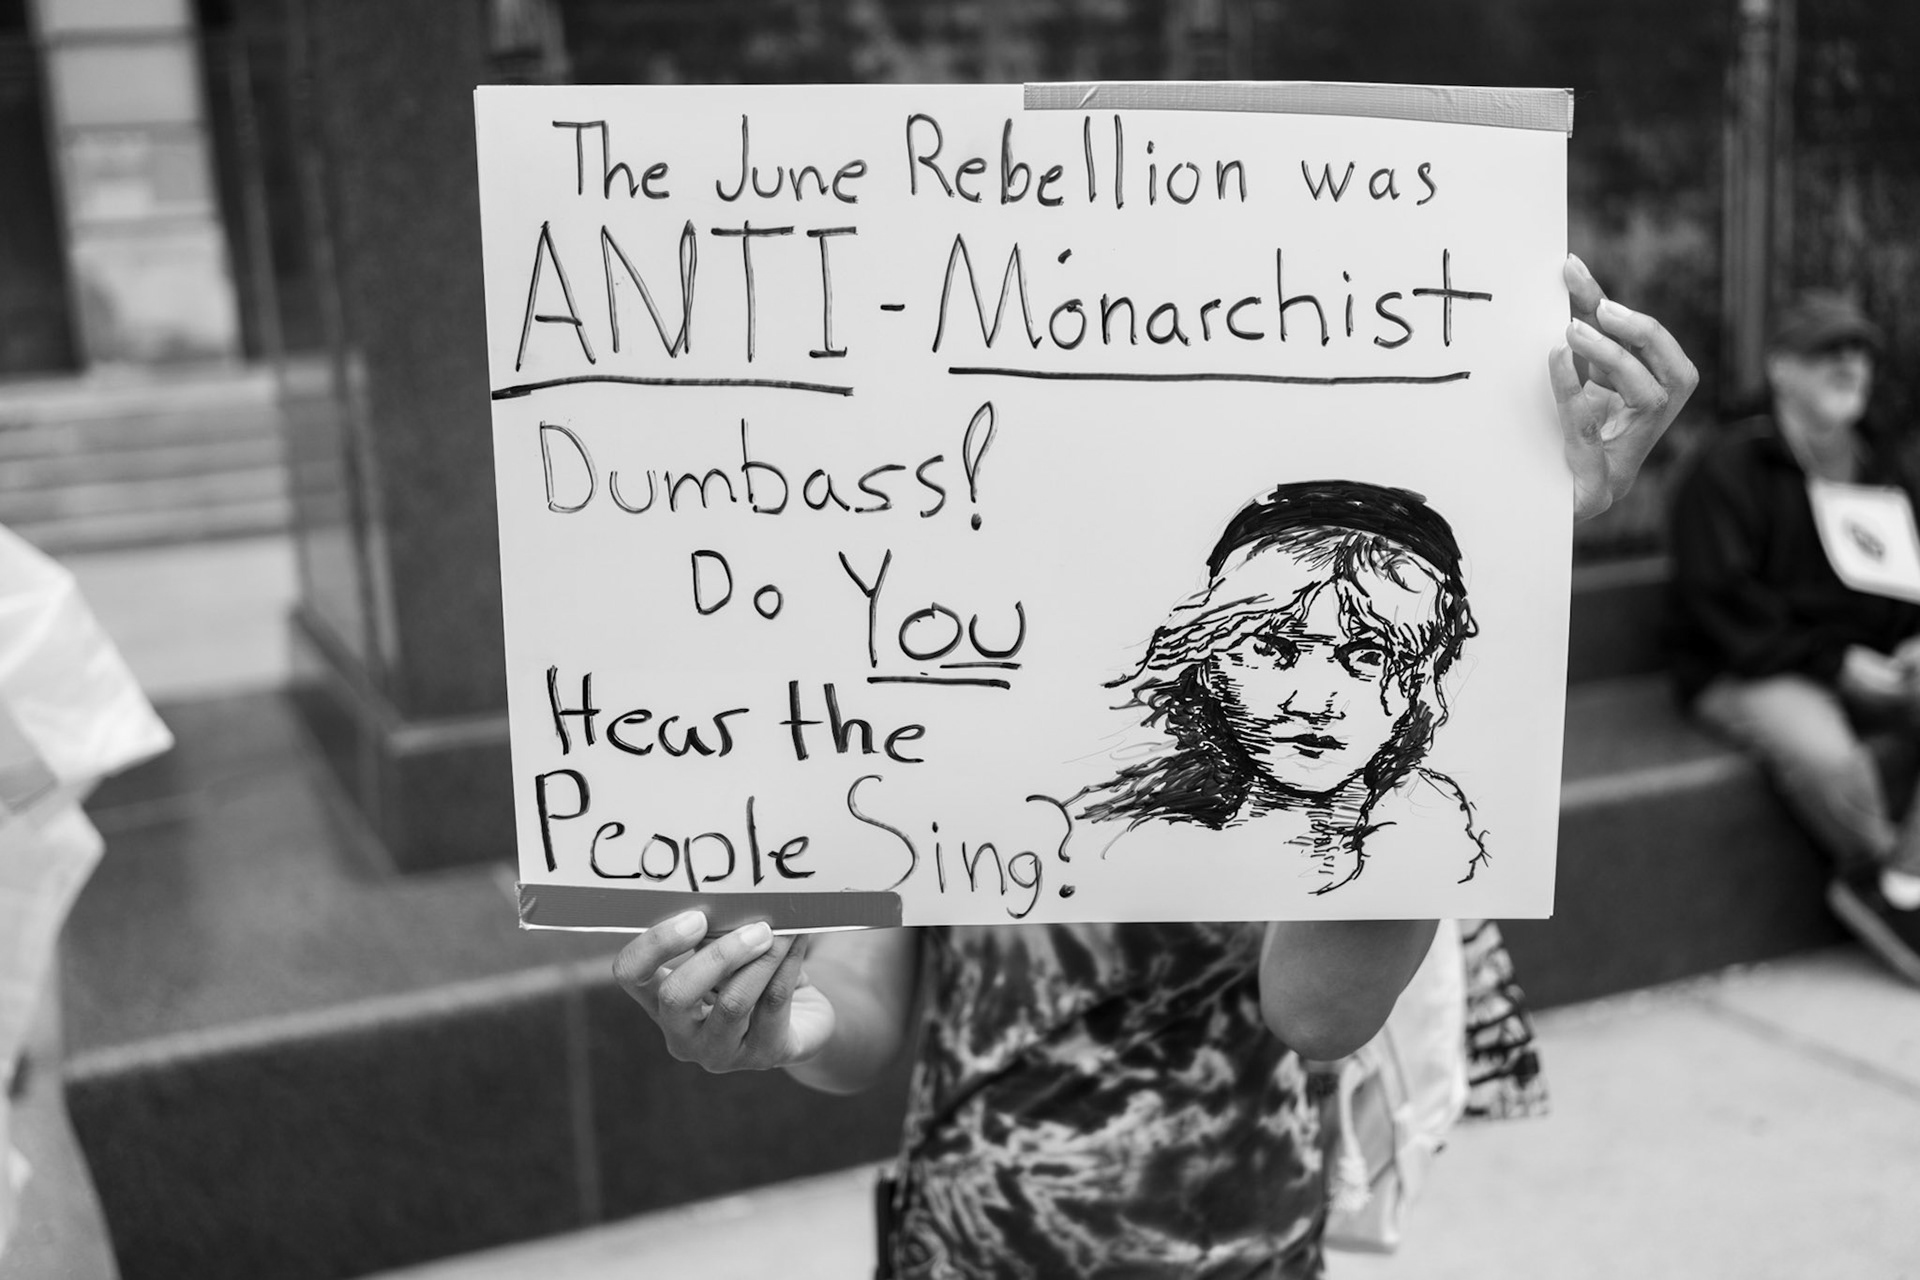 The June Rebellion was
ANTI-Monarchist
Dumbass!
Do YOU
Hear the
People Sing?